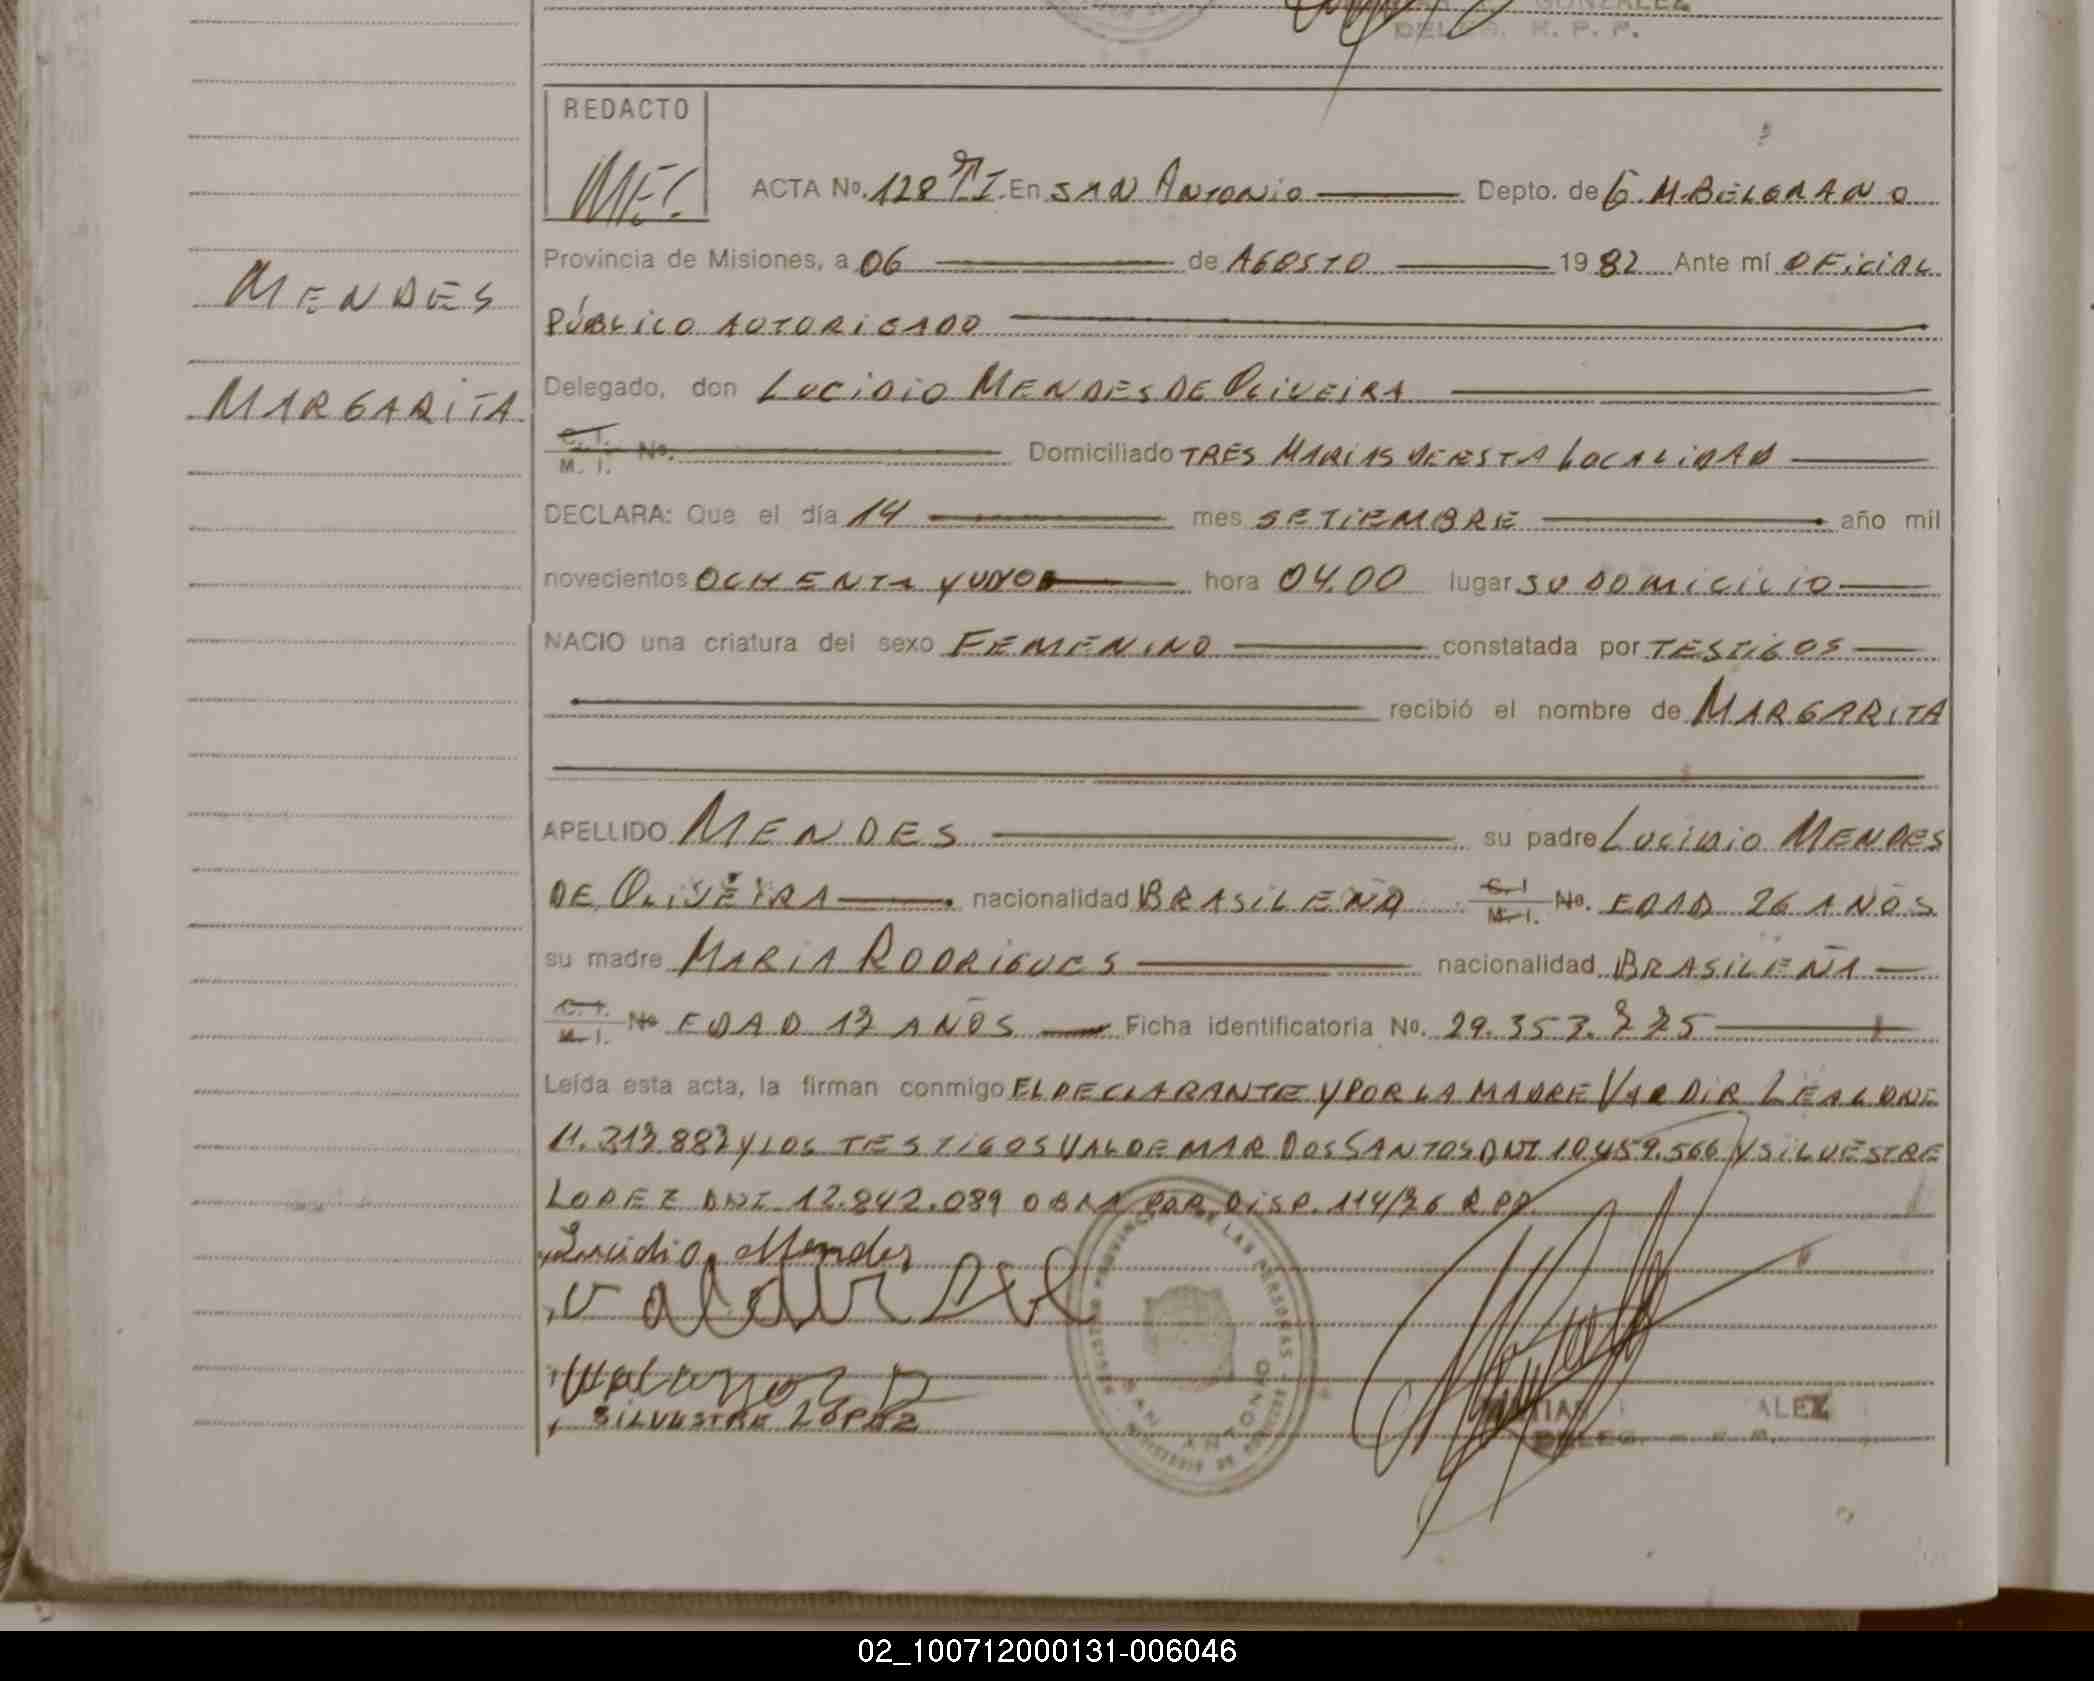 GONZALEZ
R. P. P.
REDACTO
ACTA No. 128 TI En SAN ANTONIO Depto. de G. M. BELGRANO
Provincia de Misiones, a 06 de AGOSTO 1982 Ante mí OFICIAL
PÚBLICO AUTORIZADO
MENDES
MARGARITA
Delegado, don LUCIDIO MENDES DE OLIVEIRA
C. I. / M. I. No. Domiciliado TRES MARIAS DE ESTA LOCALIDAD
DECLARA: Que el día 14 mes SETIEMBRE año mil
novecientos OCHENTA Y UNO hora 04.00 lugar SU DOMICILIO
NACIO una criatura del sexo FEMENINO constatada por TESTIGOS
recibió el nombre de MARGARITA
APELLIDO MENDES su padre LUCIDIO MENDES
DE OLIVEIRA nacionalidad BRASILEÑA C. I / M. I. No. EDAD 26 AÑOS
su madre MARIA RODRIGUES nacionalidad BRASILEÑA
C. I. / M. I. No EDAD AÑOS Ficha identificatoria No. 29.353.
Leída esta acta, la firman conmigo EL DECLARANTE Y POR LA MADRE VALDIR LEAL DNI
Y LOS TESTIGOS VALDEMAR DOS SANTOS DNI 10.459.566 Y SILVESTRE
LOPEZ DNI 12.842.089 OBRA POR DISP. 114/76 R PP.
Lucidio Mendes
Valdir
SILVESTRE LOPEZ
SAN ANTONIO
DELEG.
02_100712000131-006046